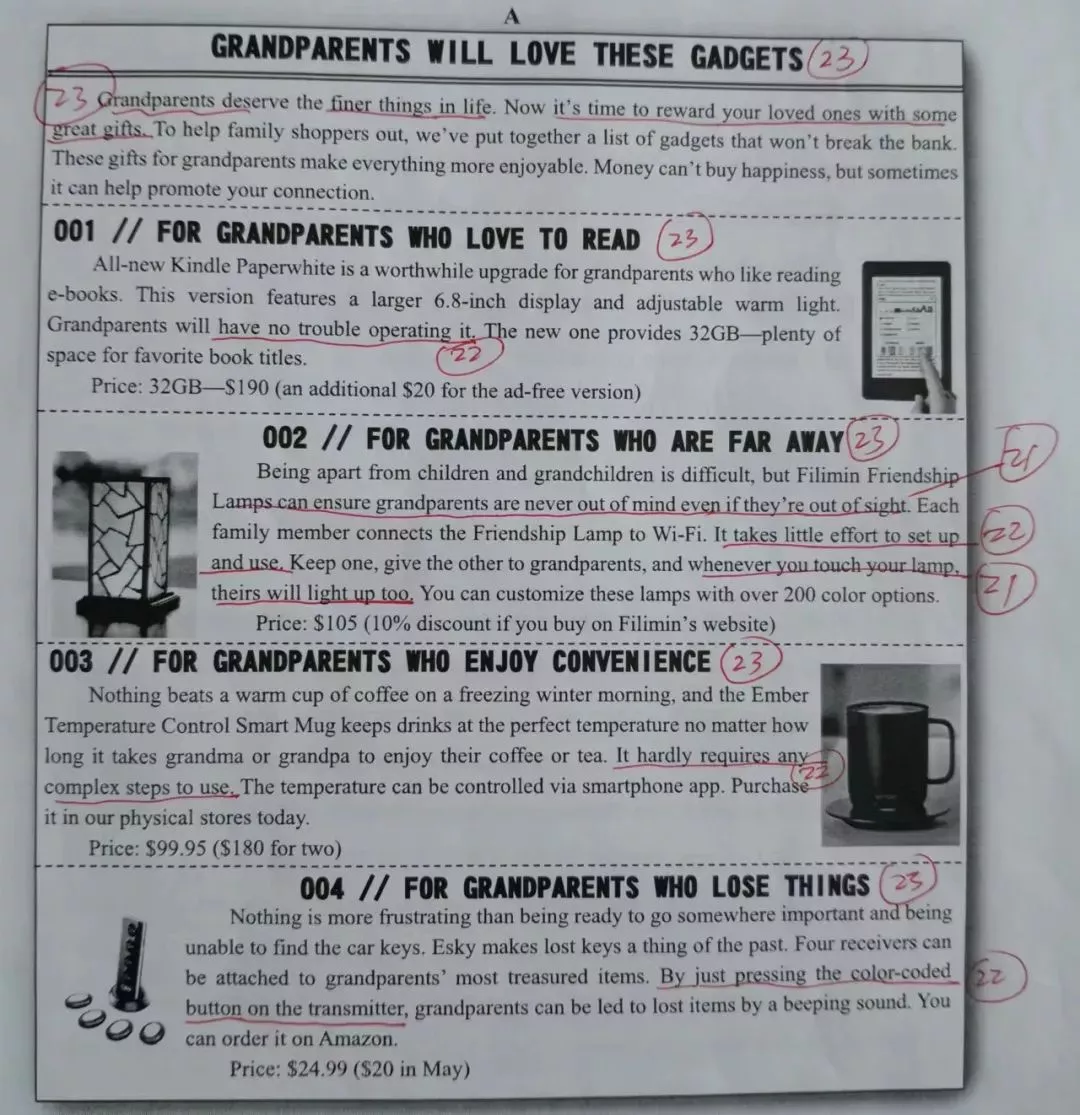 A
GRANDPARENTS WILL LOVE THESE GADGETS 23
23 Grandparents deserve the finer things in life. Now it's time to reward your loved ones with some
great gifts. To help family shoppers out, we've put together a list of gadgets that won't break the bank.
These gifts for grandparents make everything more enjoyable. Money can't buy happiness, but sometimes
it can help promote your connection.
001 // FOR GRANDPARENTS WHO LOVE TO READ 23
All-new Kindle Paperwhite is a worthwhile upgrade for grandparents who like reading
e-books. This version features a larger 6.8-inch display and adjustable warm light.
Grandparents will have no trouble operating it. The new one provides 32GB—plenty of
22
space for favorite book titles.
Price: 32GB—$190 (an additional $20 for the ad-free version)
002 // FOR GRANDPARENTS WHO ARE FAR AWAY 23
21
Being apart from children and grandchildren is difficult, but Filimin Friendship
Lamps can ensure grandparents are never out of mind even if they're out of sight. Each
family member connects the Friendship Lamp to Wi-Fi. It takes little effort to set up 22
and use. Keep one, give the other to grandparents, and whenever you touch your lamp,
21
theirs will light up too. You can customize these lamps with over 200 color options.
Price: $105 (10% discount if you buy on Filimin's website)
003 // FOR GRANDPARENTS WHO ENJOY CONVENIENCE 23
Nothing beats a warm cup of coffee on a freezing winter morning, and the Ember
Temperature Control Smart Mug keeps drinks at the perfect temperature no matter how
long it takes grandma or grandpa to enjoy their coffee or tea. It hardly requires any
22
complex steps to use. The temperature can be controlled via smartphone app. Purchase
it in our physical stores today.
Price: $99.95 ($180 for two)
004 // FOR GRANDPARENTS WHO LOSE THINGS 23
Nothing is more frustrating than being ready to go somewhere important and being
unable to find the car keys. Esky makes lost keys a thing of the past. Four receivers can
be attached to grandparents' most treasured items. By just pressing the color-coded 22
button on the transmitter, grandparents can be led to lost items by a beeping sound. You
can order it on Amazon.
Price: $24.99 ($20 in May)